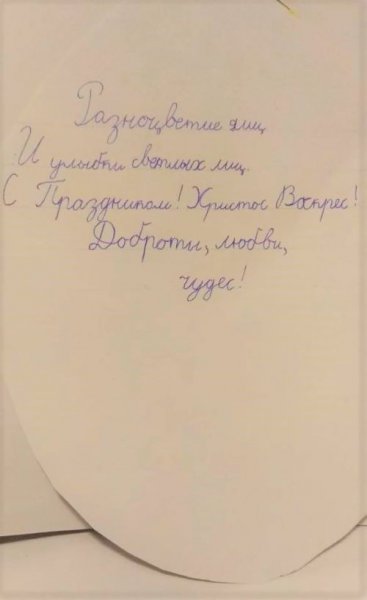 Разноцветие яиц
И улыбки светлых лиц.
С Праздником! Христос Воскрес!
Доброты, любви,
чудес!